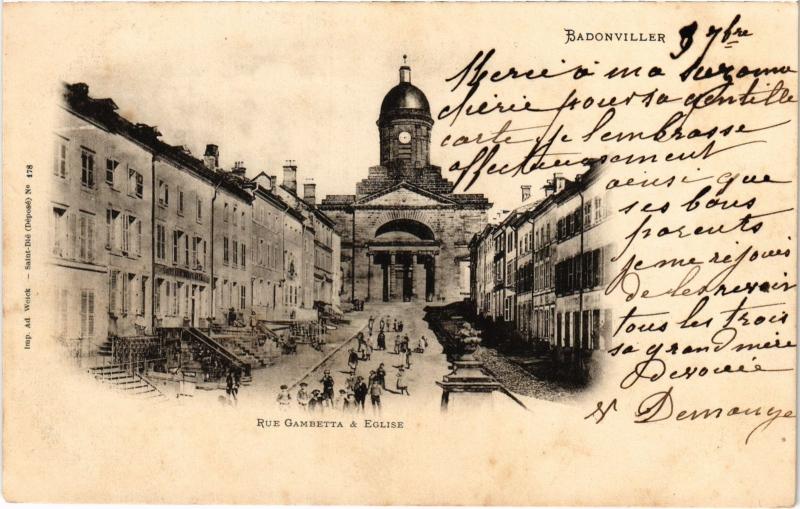 BADONVILLER
9 7bre
Merci à ma Suzanne
chérie pour sa gentille
carte je l'embrasse
affectueusement
ainsi que
ses bons
parents
je me rejouis
de les revoir
tous les trois
sa grand mère
Devouée
Demange
RUE GAMBETTA & EGLISE
Imp. Ad. Weick — Saint-Dié (Déposé) No 478